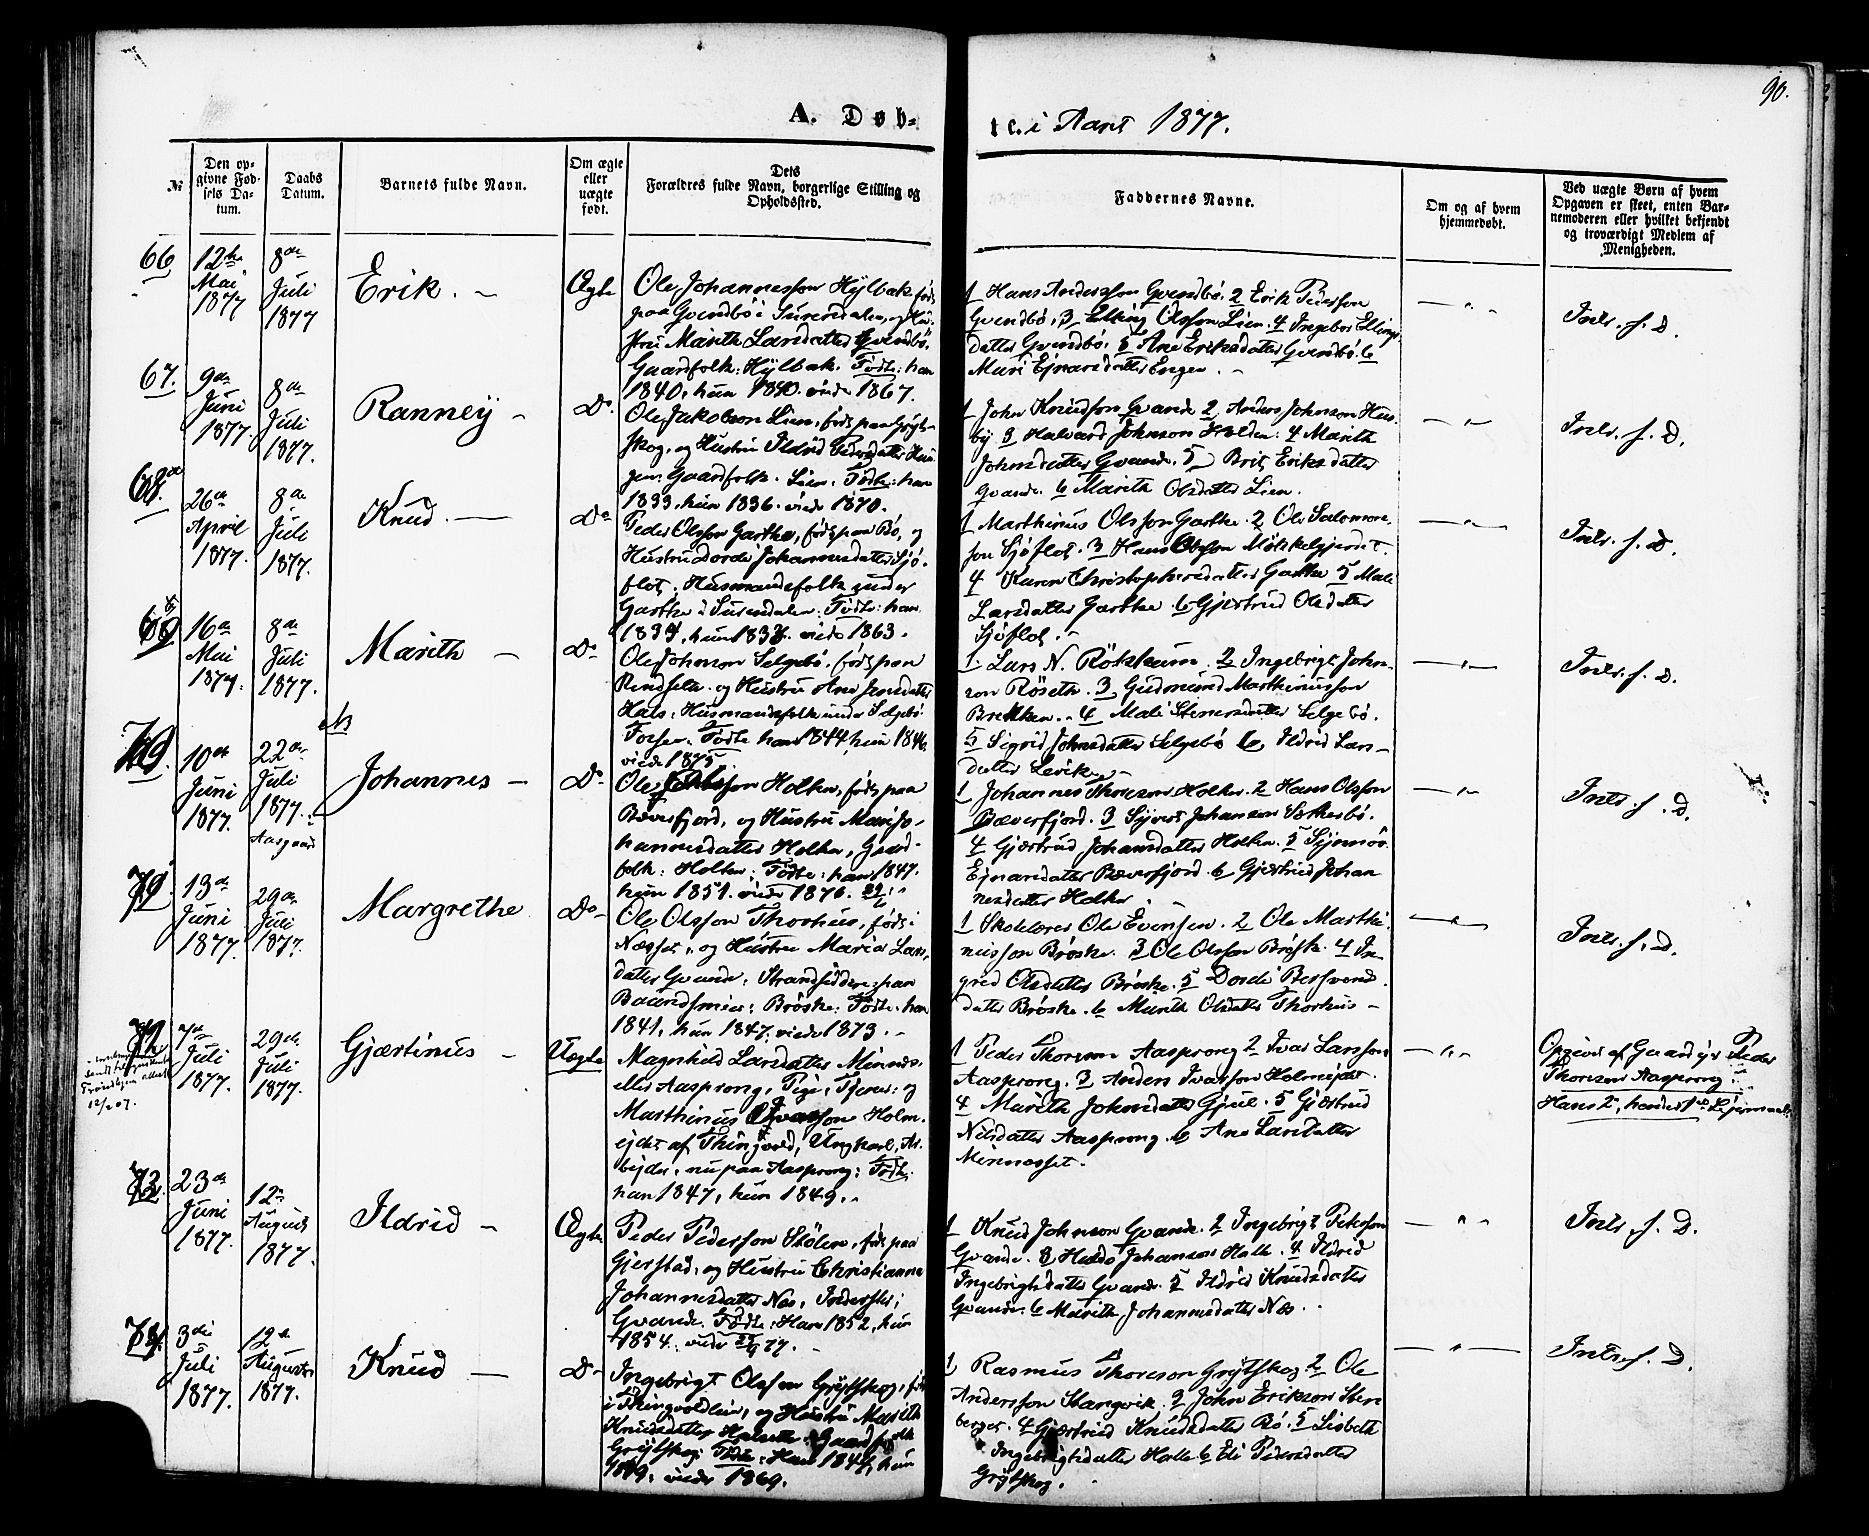 90.
A. Døb-
te. i Aaret 1877.
№
Den op-
givne Fød-
sels Da-
tum.
Daabs
Datum.
Barnets fulde Navn.
Om ægte
eller
uægte
født.
Dets
Forældres fulde Navn, borgerlige Stilling og
Opholdssted.
Faddernes Navne.
Om og af hvem
hjemmedøbt.
Ved uægte Børn af hvem
Opgaven er skeet, enten Bar-
nemoderen eller hvilket bekjendt
og troværdigt Medlem af
Menigheden.
66
12te
Mai
1877
8de
Juli
1877
Erik.
Ægte
Ole Johannesson Hylbak, født
paa Gvendbø i Surendalen, og Hu-
stru Marith Larsdatter Gvendbø,
Gaardfolk: Hylbak. Fødte: han
1840, hun 1840. viede 1867.
1 Hans Andersson Gvendbø. 2 Erik Pedersson
Gvendbø, 3 Elling Olsson Lien. 4 Ingebor Ellings
datter Gvendbø, 5 Ane Eriksdatter Gvendbø. 6
Mari Ejnarsdatter Engen.
Indr. f. D.
67.
9de
Juni
1877.
8de
Juli
1877.
Ranney
Do.
Ole Jakobson Lien, født paa Grøt-
skog, og Hustru Ildrid Pedersdatter
Gaardfolk. Lien. Fødte: han
1833, hun 1836. viede 1870.
1 John Knudson Gvande 2 Anders Johnson Hus-
by 3 Halvard Johnson Halden. 4 Marith
Johnsdatter Gvande. 5 Brit Eriksdatter
Gvande. 6 Marith Olsdatter Lien.
Indr. f. D.
68.
26de
April
1877.
8de
Juli
1877.
Knud.
Do
Peder Olsson Garthe, født paa Bø, og
Hustru Dordi Johannesdatter Sjø-
flot, Husmandsfolk under
Garthe i Surendalen. Fødte: han
viede 1863.
1 Marthinus Olsson Garthe. 2 Ole Salomon-
son Sjøflot. 3 Hans Olsson
4 Karen Christophersdatter Garthe 5 Mali
Larsdatter Garthe. 6 Gjertrud Olsdatter
Sjøflot.
Indr. f. D.
16de
Mai
1877.
8de
Juli
1877.
Marith
Do
Ole Johnson Selgebø, født paa
Rindseli og Hustru Ane
Hals: Husmandsfolk under Selgebø
Fødte han 1844, hun 1846.
viede 1875.
1. Lars N. Røkkum. 2 Ingebrigt John-
son Røseth. 3 Gudmund Marthinusson
Brekken. 4 Mali Stenersdatter Selgebø.
5 Sigrid Johnsdatter Selgebø 6 Ildrid Lars-
datter
Indr. f. D.
10de
Juni
1877.
22de
Juli
1877.
Aasgaard
Johannes
Do
Holten, født paa
Bæverfjord, og Hustru Mari Jo-
hannesdatter Holten, Gaard-
folk: Holten: Fødte: han 1847.
hun 1851. viede 1876.
1 Johannes Thoreson Holten. 2 Hans Olsson
Bæverfjord. 3 Sivert Johanson Sæthersbø.
4 Gjertrud Johansdatter Holten. 5
Ejnarsdatter Bæverfjord. 6 Gjertrud Johan
nesdatter Holten.
Indr. f. D.
13de
Juni
1877.
29de
Juli
1877.
Margrethe
Do
Ole Olsson Thorhus, født i
Næsset, og Hustru Maria Lars-
datter Gvande, Strandsiddere: paa
Brøske: Fødte: han
1841, hun 1847. viede 1873.
1 Skolelærer Ole Evensen. 2 Ole Marthi-
nusson Brøske. 3 Ole Olsson Brøske. 4 In-
grid Olsdatter Brøske. 5 Dordi Bersvend
datter Brøske. 6 Marith Olsdatter Thorhus
Indr. f. D.
7de
Juli
1877.
29de
Juli
1877.
12/2 07.
Gjertinus
Uægte
Magnhild Larsdatter Minnes-
eller Aasprong, Pige, Tjener: og
Marthinus Ivarsson Holm-
ejdet af Thingvold, Ungkarl, Ar-
bejder, nu paa Aasprong: Fødte:
han 1847, hun 1849.
1 Peder Thoreson Aasprong 2 Ivar Larsson
Aasprong. 3 Anders Ivarsson Holmejdet.
4 Marith Johnsdatter Gjul. 5 Gjertrud
Nilsdatter Aasprong. 6 Ane Larsdatter
Minnesset.
Opgivet af Peder
Thoreson Aasprong:
Hans 2, hendes 1ste Lejermaal.
23de
Juni
1877.
12te
August
1877.
Ildrid
Ægte
Peder Pederson Stølen, født paa
Gjerstad, og Hustru Christianna
Johannesdatter Næs, Inderster:
Gvande. Fødte: Han 1852, hun
1854. viede
1 Knud Johnson Gvande. 2 Ingebrigt Peterson
Gvande. 3 Johanson Halle. 4 Ildrid
Ingebrigtsdatter Gvande. 5 Ildrid Knudsdatter
Gvande. 6 Marith Johannesdatter Næs.
Indr. f. D.
3die
Juli
1877.
12te
August
1877.
Knud
Do
Ingebrigt Olsson Grytskog, født
i Thingvold, og Hustru Marith
Knudsdatter Gaardfolk
Grytskog. Fødte: Han 1844, hun
viede 1869.
1 Rasmus Thoreson Grytskog 2 Ole
Andersson Stangvik. 3 John Erikson Sten
berget. 4 Gjertrud Knudsdatter Bø. 5 Lisbeth
Ingebrigtsdatter Halle 6 Eli Pedersdatter
Grytskog.
Indr. f. D.